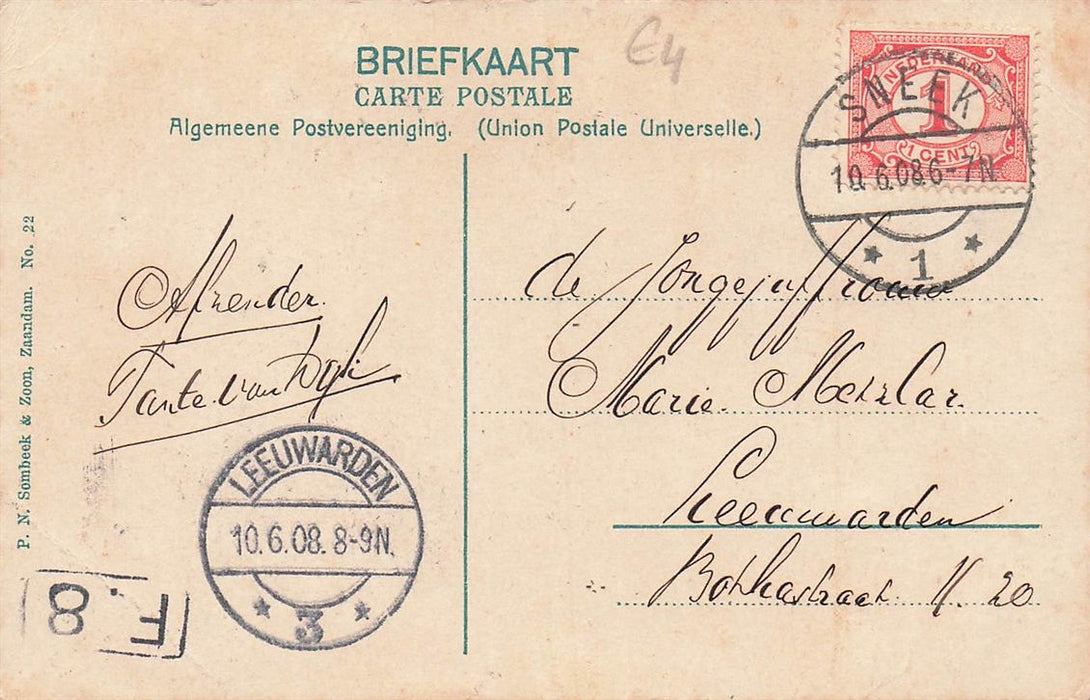 BRIEFKAART
CARTE POSTALE
Algemeene Postvereeniging. (Union Postale Universelle.)
€4
NEDERLAND
1
1 CENT
SNEEK
10.6.08 6-7N
1
P. N. Sombeek & Zoon, Zaandam. No. 22
Afzender
Tante van
de Jongejuffrouw
Marie Metzlar.
Leeuwarden
Bothastraat N. 20
LEEUWARDEN
10.6.08. 8-9N.
3
F. 8